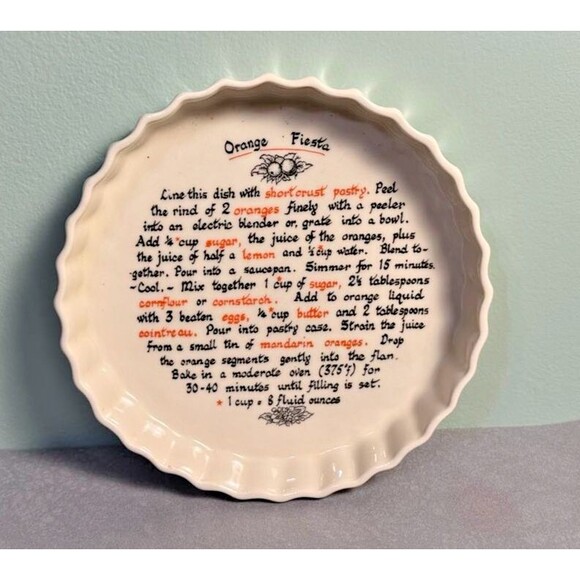 Orange Fiesta
Line this dish with shortcrust pastry. Peel
the rind of 2 oranges finely with a peeler
into an electric blender or, grate into a bowl.
Add ¼*cup sugar, the juice of the oranges, plus
the juice of half a lemon and ¼*cup water. Blend to-
-gether. Pour into a saucepan. Simmer for 15 minutes.
-Cool.- Mix together 1*cup of sugar, 2½ tablespoons
cornflour or cornstarch. Add to orange liquid
with 3 beaten eggs, ¼*cup butter and 2 tablespoons
cointreau. Pour into pastry case. Strain the juice
from a small tin of mandarin oranges. Drop
the orange segments gently into the flan.
Bake in a moderate oven (375°f) for
30-40 minutes until filling is set.
* 1 cup = 8 fluid ounces